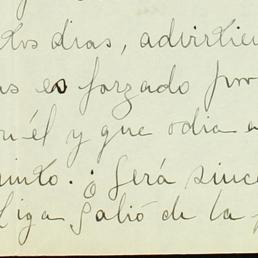 tos dias, advirtien
as es forzado por
él y que odia e
into. ¿Será since
liga salió de la